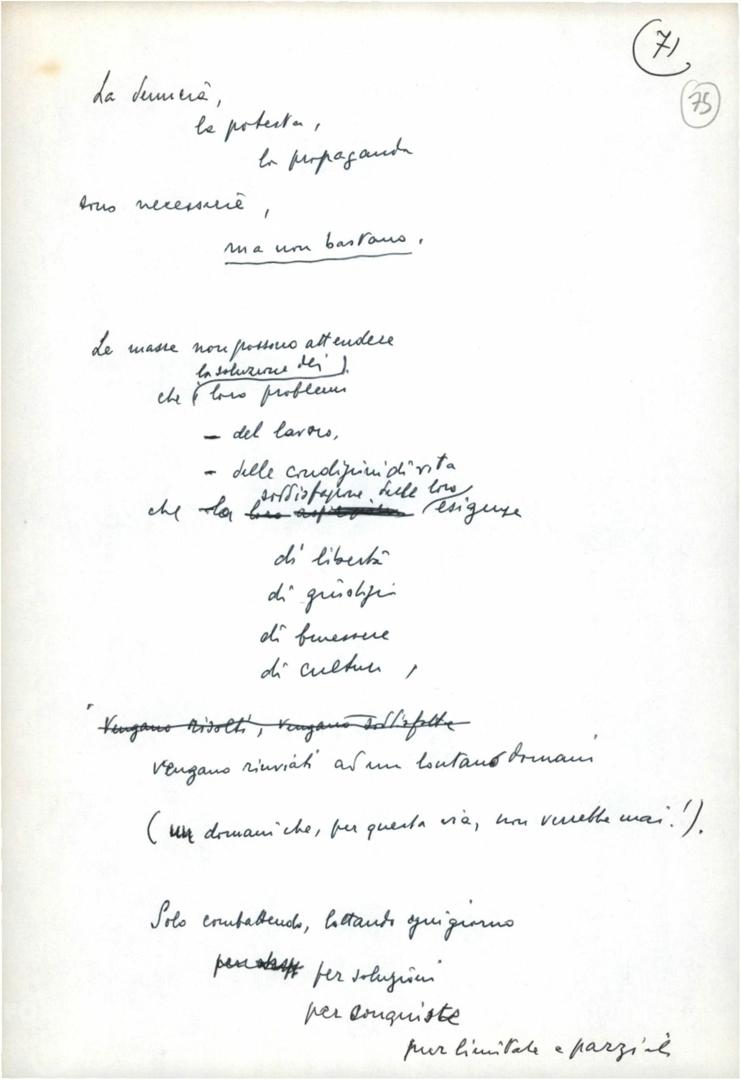 71
75
La denuncia,
la protesta,
la propaganda
sono necessarie,
ma non bastano.
Le masse non possono attendere
la soluzione dei
che loro problemi
- del lavoro,
- delle condizioni di vita
soddisfazione delle loro
che la loro esigenze
di libertà
di giustizia
di benessere
di cultura,
vengano risolti, vengano soddisfatte
vengano rinviati ad un lontano domani
(un domani che, per questa via, non verrebbe mai!).
Solo combattendo, lottando ogni giorno
per soluzioni
per conquiste
pur limitate e parziali